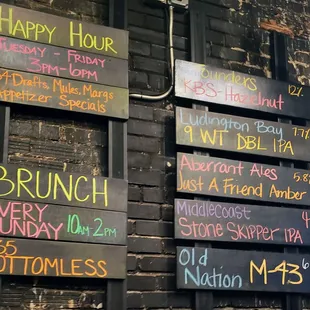 Happy Hour
Tuesday - Friday
3pm-10pm
$4 Drafts, Mules, Margs
Appetizer Specials
BRUNCH
10am-2pm
BOTTOMLESS
Founders 12%
KBS-Hazelnut
Ludington Bay 7.7%
9 WT DBL IPA
Aberrant Ales 5.8%
Just A Friend Amber
Middlecoast
Stone Skipper IPA
Old Nation
M-43